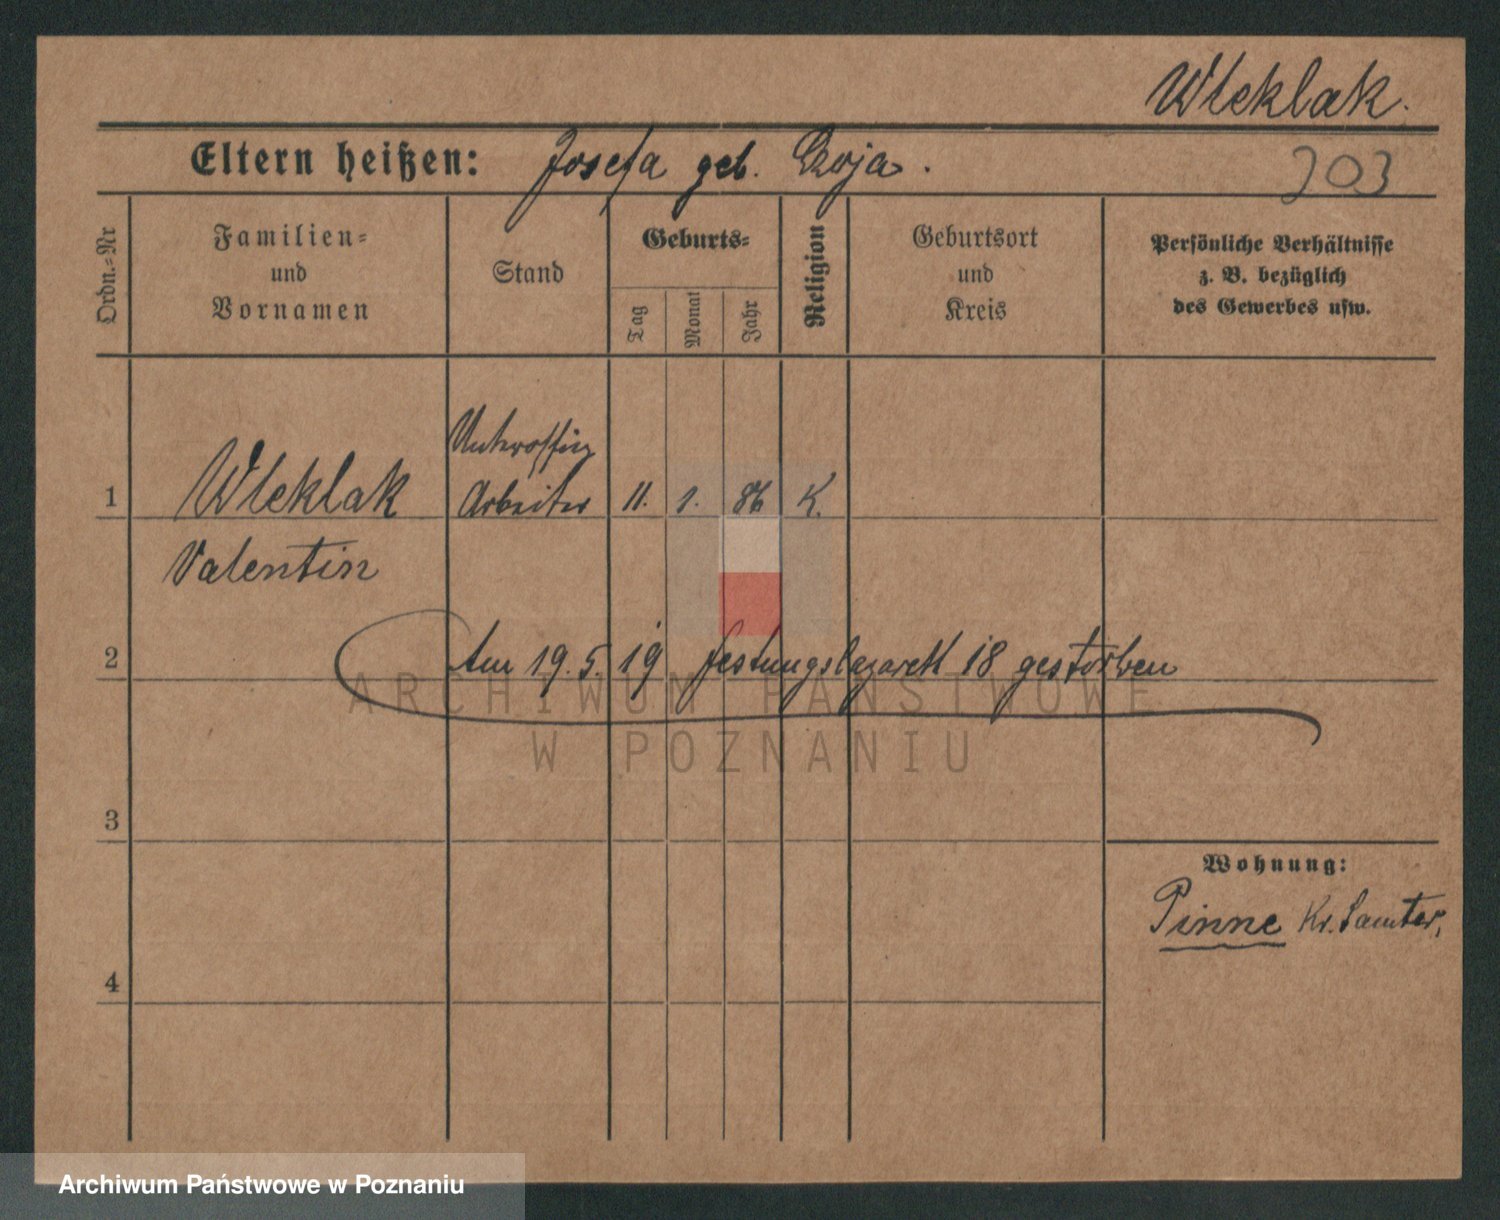 Wleklak.
Eltern heißen: Josefa geb. Czoja.
303
Ordn.-Nr
Familien-
und
Vornamen
Stand
Geburts-
Tag
Monat
Jahr
Religion
Geburtsort
und
Kreis
Persönliche Verhältnisse
z. B. bezüglich
des Gewerbes usw.
Unteroffiz
1 Wleklak Arbeiter 11. 1. 86 K.
Valentin
2 Am 19. 5. 19 Festungslazarett 18 gestorben
ARCHIWUM PAŃSTWOWE
W POZNANIU
3
Wohnung:
Pinne Kr. Samter,
4
Archiwum Państwowe w Poznaniu